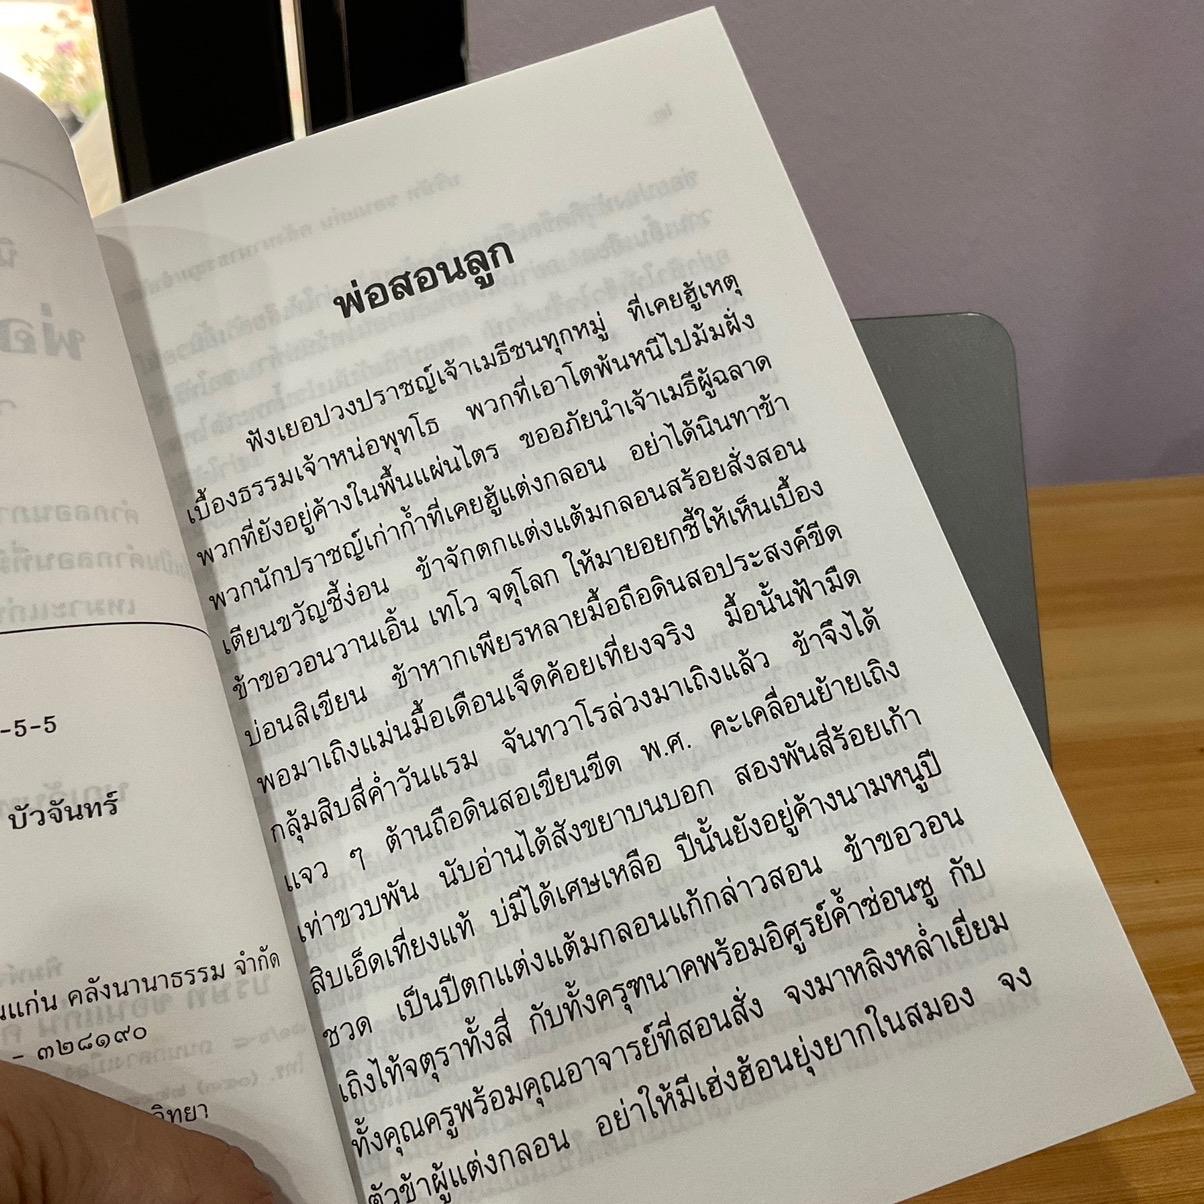 -5-5
บัวจันทร์
นแก่น คลังนานาธรรม จำกัด
- ๓๒๘๑๙๐
วิทยา
พ่อสอนลูก
ฟังเยอปวงปราชญ์เจ้าเมธีชนทุกหมู่ ที่เคยฮู้เหตุ
เบื้องธรรมเจ้าหน่อพุทโธ พวกที่เอาโตพ้นหนีไปมัมฝั่ง
พวกที่ยังอยู่ค้างในพื้นแผ่นไตร ขออภัยนำเจ้าเมธีผู้ฉลาด
พวกนักปราชญ์เก่าก้ำที่เคยฮู้แต่งกลอน อย่าได้นินทาข้า
เตียนขวัญชี้ง่อน ข้าจักตกแต่งแต้มกลอนสร้อยสั่งสอน
ข้าขอวอนวานเอิ้น เทโว จตุโลก ให้มายอยกชี้ให้เห็นเบื้อง
บ่อนสิเขียน ข้าหากเพียรหลายมื้อถือดินสอประสงค์ขีด
พอมาเถิงแม่นมื้อเดือนเจ็ดค้อยเที่ยงจริง มื้อนั้นฟ้ามืด
กลุ้มสิบสี่ค่ำวันแรม จันทวาโรล่วงมาเถิงแล้ว ข้าจึงได้
แจว ๆ ต้านถือดินสอเขียนขีด พ.ศ. คะเคลื่อนย้ายเถิง
เท่าขวบพัน นับอ่านได้สังขยาบนบอก สองพันสี่ร้อยเก้า
สิบเอ็ดเที่ยงแท้ บ่มีได้เศษเหลือ ปีนั้นยังอยู่ค้างนามหนูปี
ชวด เป็นปีตกแต่งแต้มกลอนแก้กล่าวสอน ข้าขอวอน
เถิงไท้จตุราทั้งสี่ กับทั้งครุฑนาคพร้อมอิศูรย์ค้ำซ่อนซู กับ
ทั้งคุณครูพร้อมคุณอาจารย์ที่สอนสั่ง จงมาหลิงหล่ำเยี่ยม
ตัวข้าผู้แต่งกลอน อย่าให้มีเฮ่งฮ้อนยุ่งยากในสมอง จง